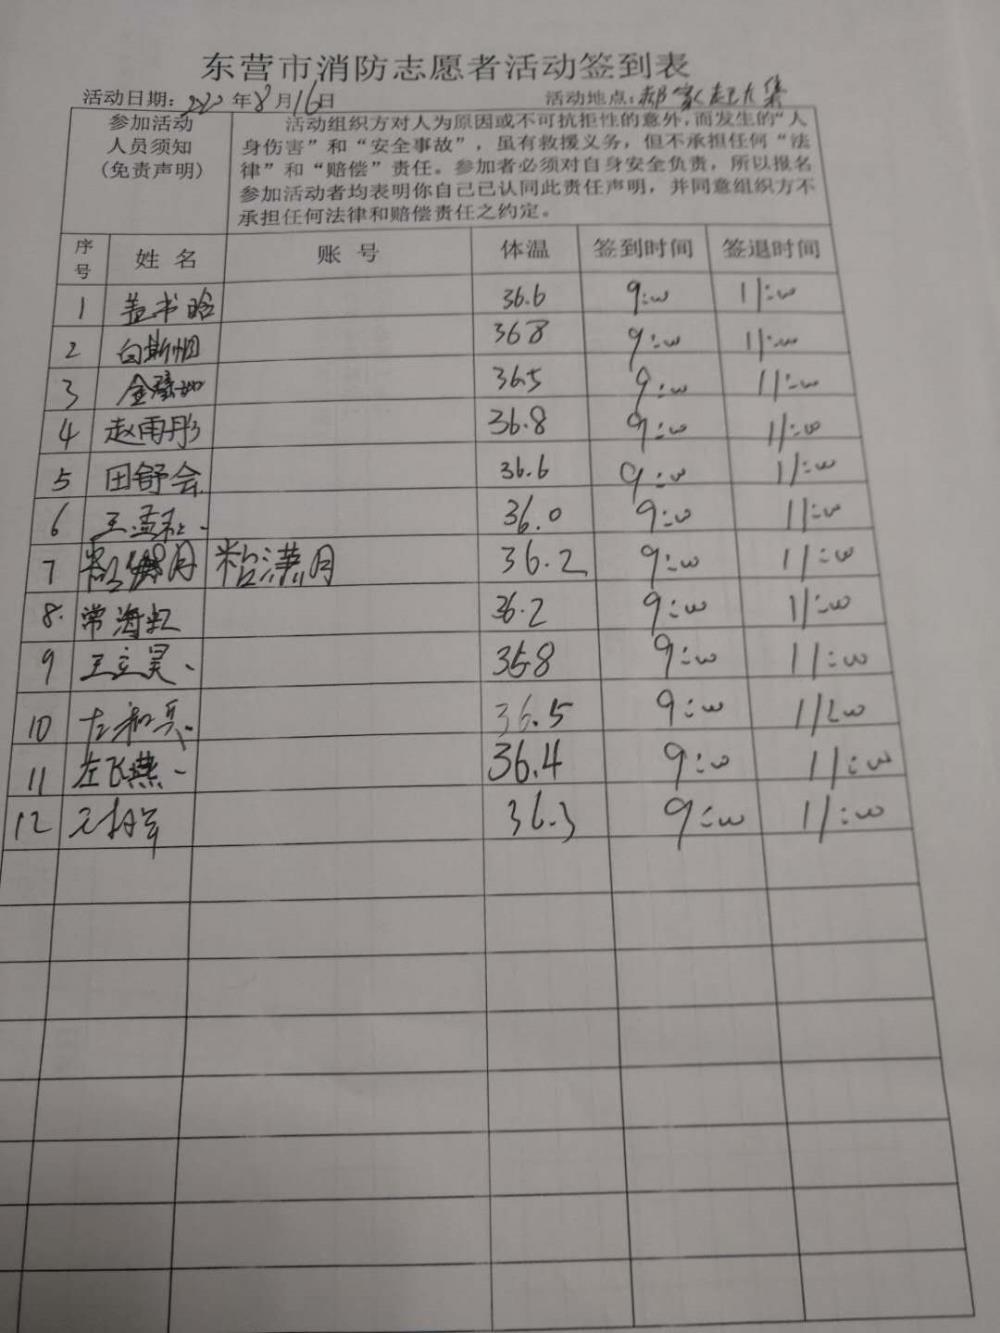 东营市消防志愿者活动签到表
活动日期：2020年8月16日 活动地点：郝家赶大集
参加活动
人员须知
(免责声明)
活动组织方对人为原因或不可抗拒性的意外，而发生的“人
身伤害”和“安全事故”，虽有救援义务，但不承担任何“法
律”和“赔偿”责任。参加者必须对自身安全负责，所以报名
参加活动者均表明你自己已认同此责任声明，并同意组织方不
承担任何法律和赔偿责任之约定。
序号 姓名 账号 体温 签到时间 签退时间
1 盖书晗 36.6 9:00 11:00
2 36.8 9:00 11:00
3 36.5 9:00 11:00
4 赵雨彤 36.8 9:00 11:00
5 田舒会 36.6 9:00 11:00
6 36.0 9:00 11:00
7 月 满月 36.2 9:00 11:00
8. 常海虹 36.2 9:00 11:00
9 王立昊 35.8 9:00 11:00
10 左和兵 36.5 9:00 11:00
11 左飞燕 36.4 9:00 11:00
12 36.3 9:00 11:00